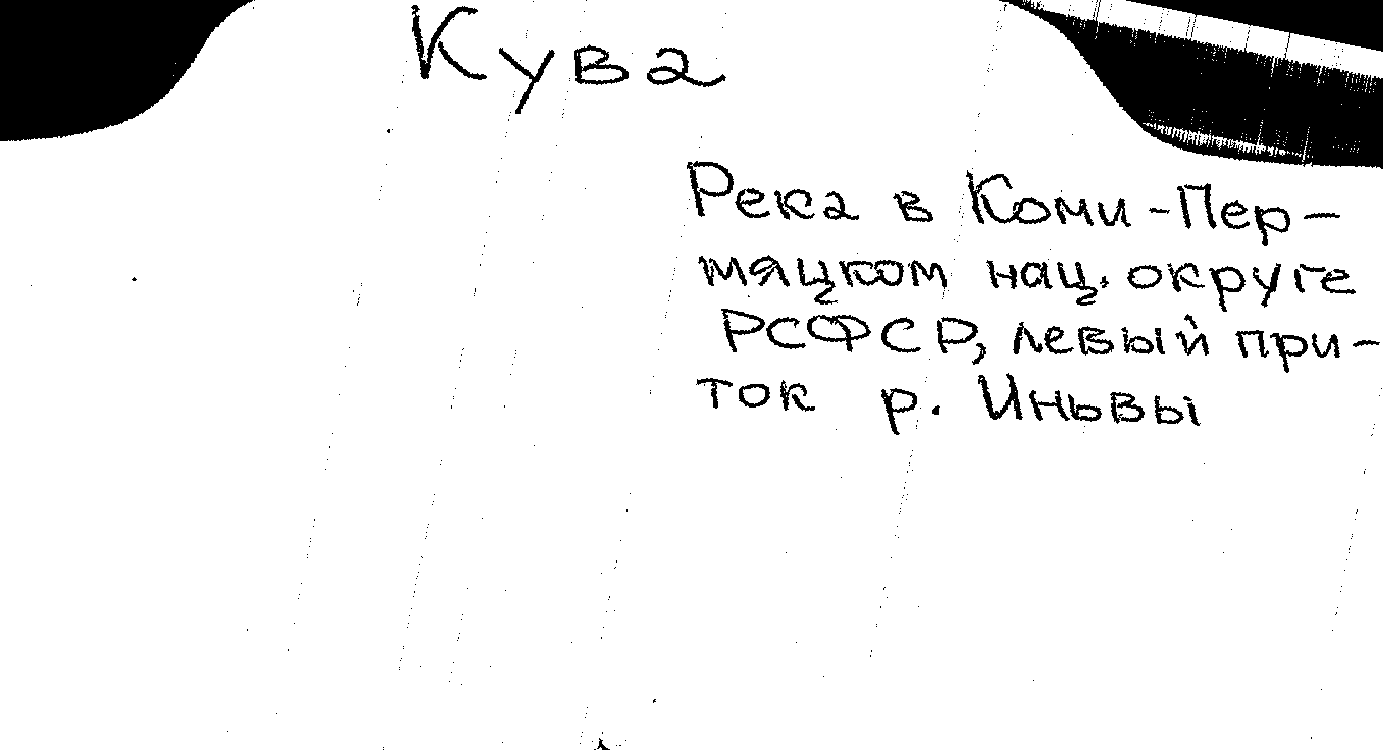 Кува
Река в Коми-Пер-
мяцком нац. округе
РСФСР, левый при-
ток р. Иньвы